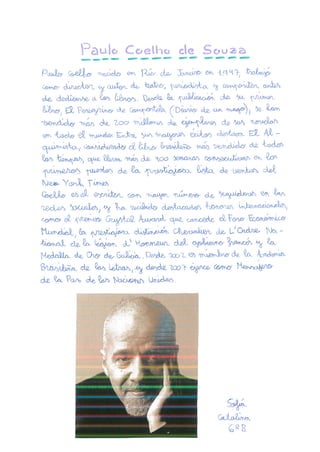 Paulo Coelho de Souza
Paulo Coelho nacido en Río de Janeiro en 1947, trabajó
como director y autor de teatro, periodista y compositor antes
de dedicarse a los libros. Desde la publicación de su primer
libro, El Peregrino de Compostela (Diario de un mago), se han
vendido más de 200 millones de ejemplares de sus novelas
en todo el mundo. Entre sus mayores éxitos destaca El Al-
quimista, considerado el libro brasileño más vendido de todos
los tiempos, que lleva más de 300 semanas consecutivas en los
primeros puestos de la prestigiosa lista de ventas del
New York Times
Coelho es el escritor con mayor número de seguidores en las
redes sociales, y ha recibido destacados honores internacionales,
como el premio Crystal Award que concede el Foro Económico
Mundial, la prestigiosa distinción Chevalier de L'Ordre Na-
tional de la Légion d'Honneur del gobierno francés y la
Medalla de Oro de Galicia. Desde 2002 es miembro de la Academia
Brasileña de las Letras, y desde 2007 ejerce como Mensajero
de la Paz de las Naciones Unidas.
Sofía
Catalina
6º B